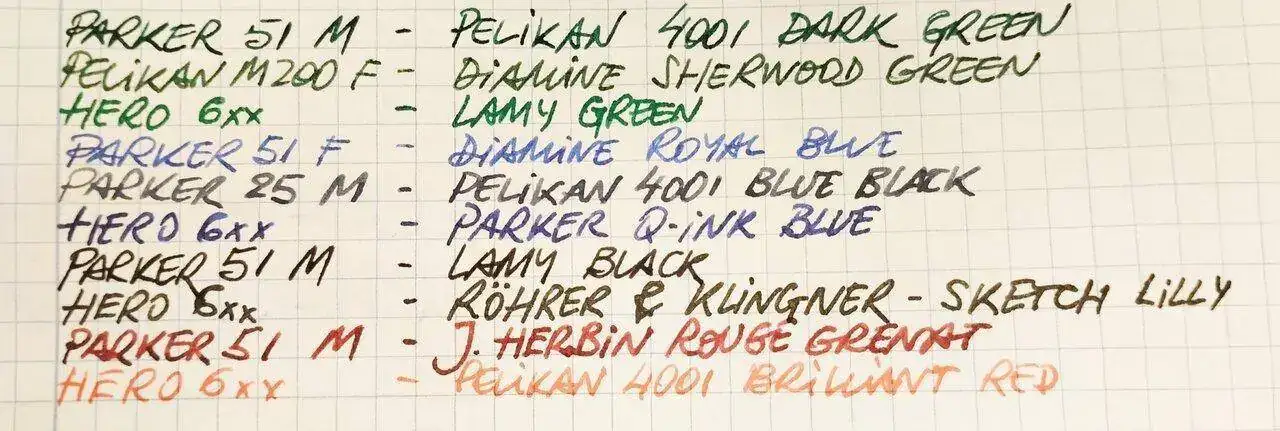 PARKER 51 M - PELiKAN 4001 DARK GREEN
PELiKAN M200 F - DiAMiNE SHERWOOD GREEN
HERO 6xx - LAMY GREEN
PARKER 51 F - DiAMiNE ROYAL BLUE
PARKER 25 M - PELiKAN 4001 BLUE BLACK
HERO 6xx - PARKER Q-iNK BLUE
PARKER 51 M - LAMY BLACK
HERO 6xx - RÖHRER & KLiNGNER - SKETCH LiLLY
PARKER 51 M - J. HERBiN ROUGE GRENAT
HERO 6xx - PELiKAN 4001 BRiLLiANT RED